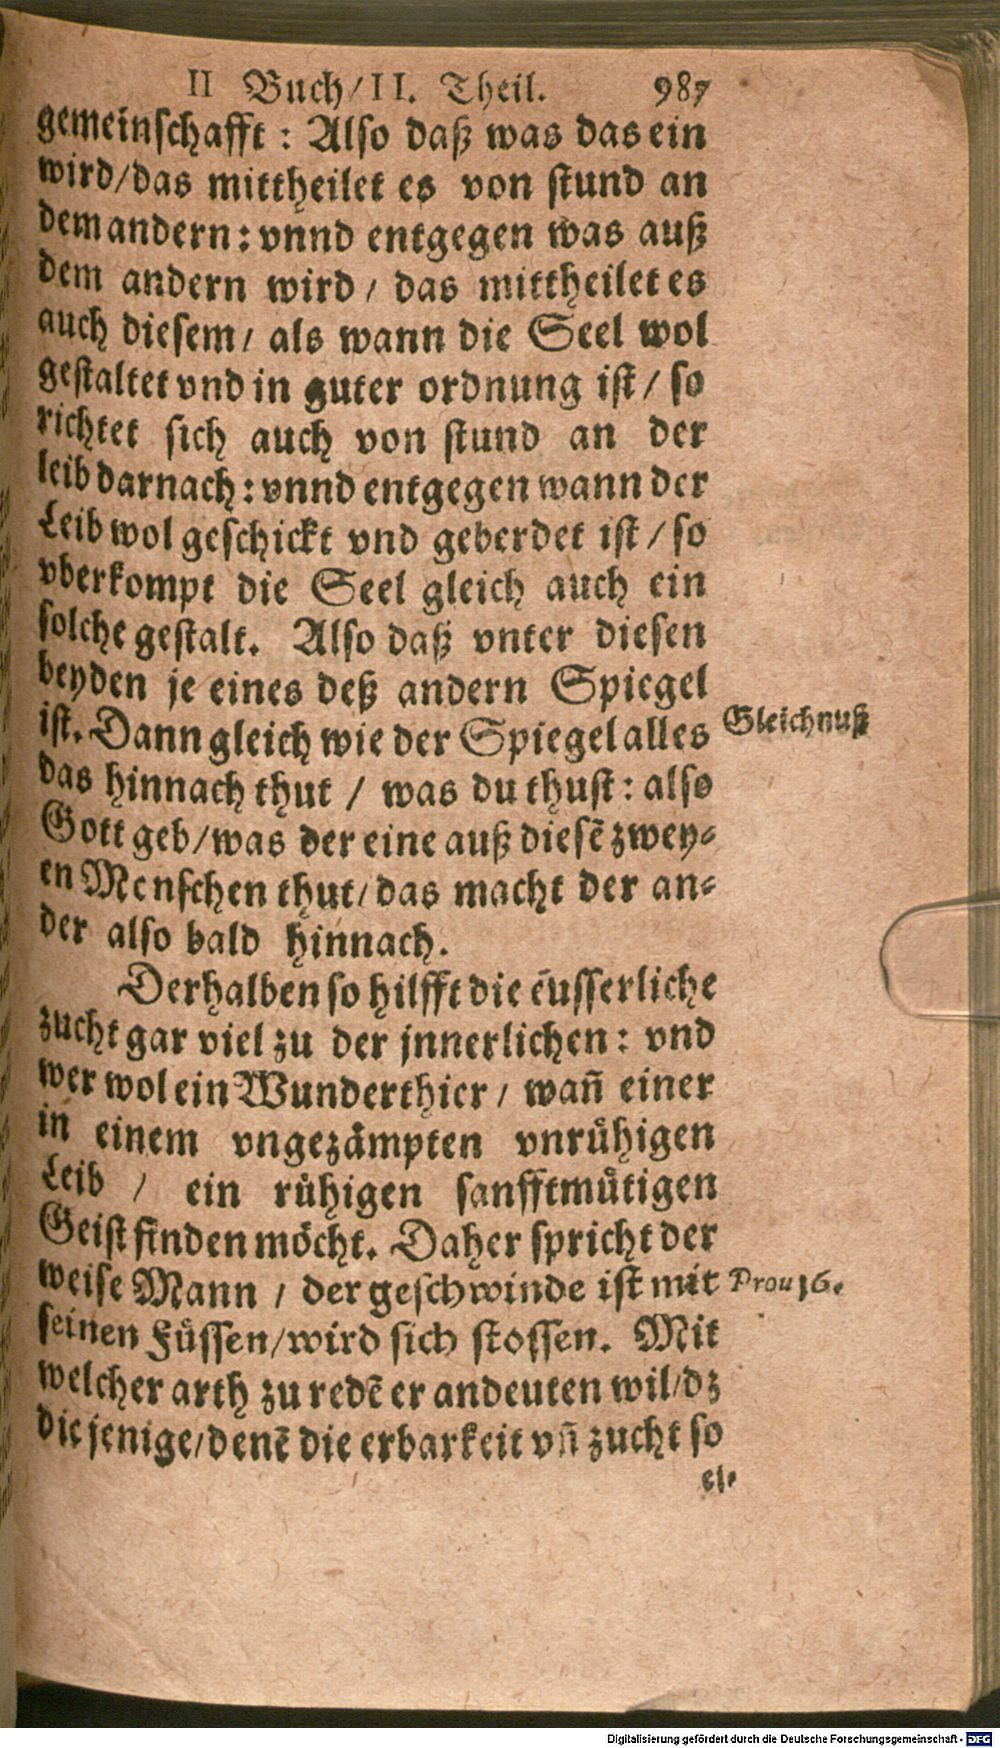 II Buch/II. Theil. 987
gemeinschafft: Also daß was das ein
wird/das mittheilet es von stund an
dem andern: vnnd entgegen was auß
dem andern wird/ das mittheilet es
auch diesem/ als wann die Seel wol
gestaltet vnd in guter ordnung ist/ so
richtet sich auch von stund an der
leib darnach: vnnd entgegen wann der
Leib wol geschickt vnd geberdet ist/ so
vberkompt die Seel gleich auch ein
solche gestalt. Also daß vnter diesen
beyden je eines deß andern Spiegel
ist. Dann gleich wie der Spiegel alles
Gleichnuß
das hinnach thut / was du thust: also
Gott geb/was der eine auß diesē zwey-
en Menschen thut/das macht der an-
der also bald hinnach.
Derhalben so hilfft die eüsserliche
zucht gar viel zu der jnnerlichen: vnd
wer wol ein Wunderthier/ wañ einer
in einem vngezämpten vnrühigen
Leib / ein rühigen sanfftmütigen
Geist finden möcht. Daher spricht der
weise Mann / der geschwinde ist mit
Prou 16.
seinen Füssen/wird sich stossen. Mit
welcher arth zu redē er andeuten wil/dz
die jenige/denē die erbarkeit vñ zucht so
Digitalisierung gefördert durch die Deutsche Forschungsgemeinschaft - DFG